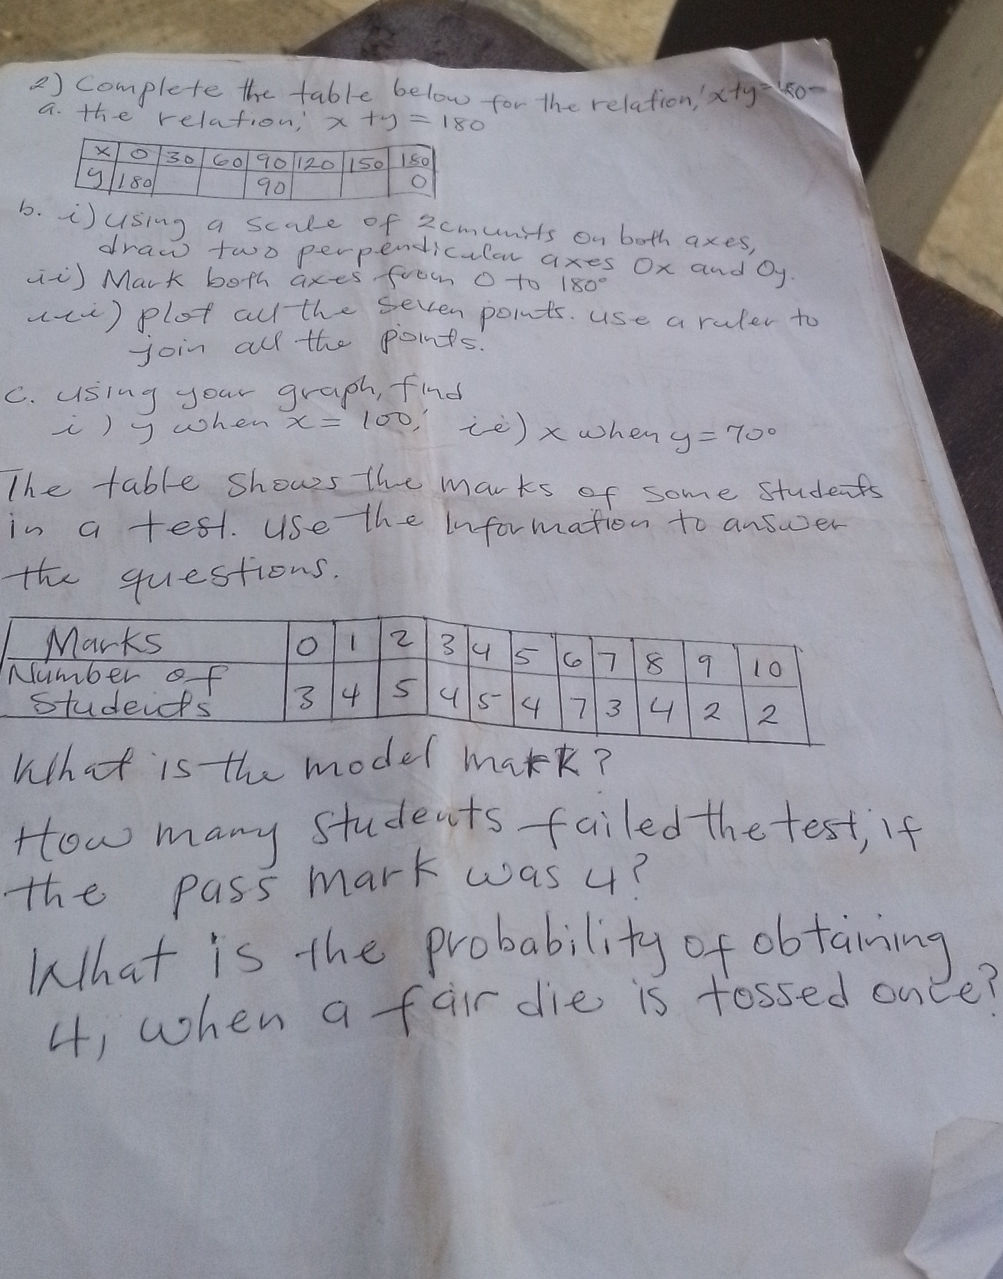 2) Complete the table below for the relation, x+y=180
a. the relation, x+y=180
x 0 30 60 90 120 150 180
y 180 90 0
b. i) using a scale of 2cm units on both axes,
draw two perpendicular axes Ox and Oy.
ii) Mark both axes from 0 to 180°
iii) plot all the seven points. use a ruler to
join all the points.
c. using your graph, find
i) y when x = 100, ii) x when y = 70°
The table shows the marks of some students
in a test. use the information to answer
the questions.
Marks 0 1 2 3 4 5 6 7 8 9 10
Number of
Students 3 4 5 4 5 4 7 3 4 2 2
What is the model mark?
How many students failed the test, if
the pass mark was 4?
What is the probability of obtaining
4, when a fair die is tossed once?